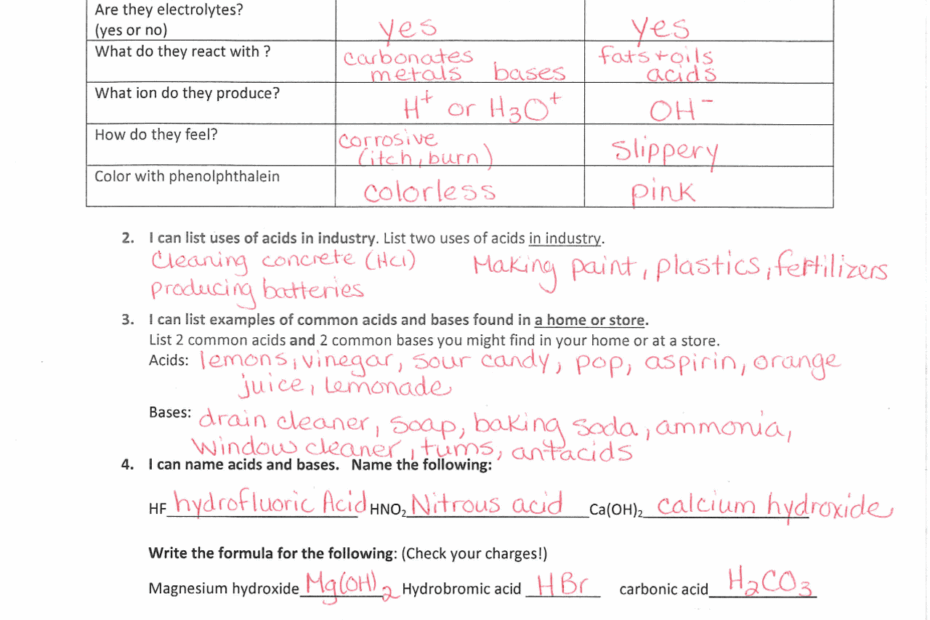 Are they electrolytes?
(yes or no) yes yes
What do they react with ? carbonates fats + oils
metals bases acids
What ion do they produce? H⁺ or H₃O⁺ OH⁻
How do they feel? corrosive slippery
(itch, burn)
Color with phenolphthalein colorless pink
2. I can list uses of acids in industry. List two uses of acids in industry.
Cleaning concrete (HCl) Making paint, plastics, fertilizers
producing batteries
3. I can list examples of common acids and bases found in a home or store.
List 2 common acids and 2 common bases you might find in your home or at a store.
Acids: lemons, vinegar, sour candy, pop, aspirin, orange
juice, lemonade
Bases: drain cleaner, soap, baking soda, ammonia,
window cleaner, tums, antacids
4. I can name acids and bases. Name the following:
HF hydrofluoric Acid HNO₂ Nitrous acid Ca(OH)₂ calcium hydroxide
Write the formula for the following: (Check your charges!)
Magnesium hydroxide Mg(OH)₂ Hydrobromic acid HBr carbonic acid H₂CO₃